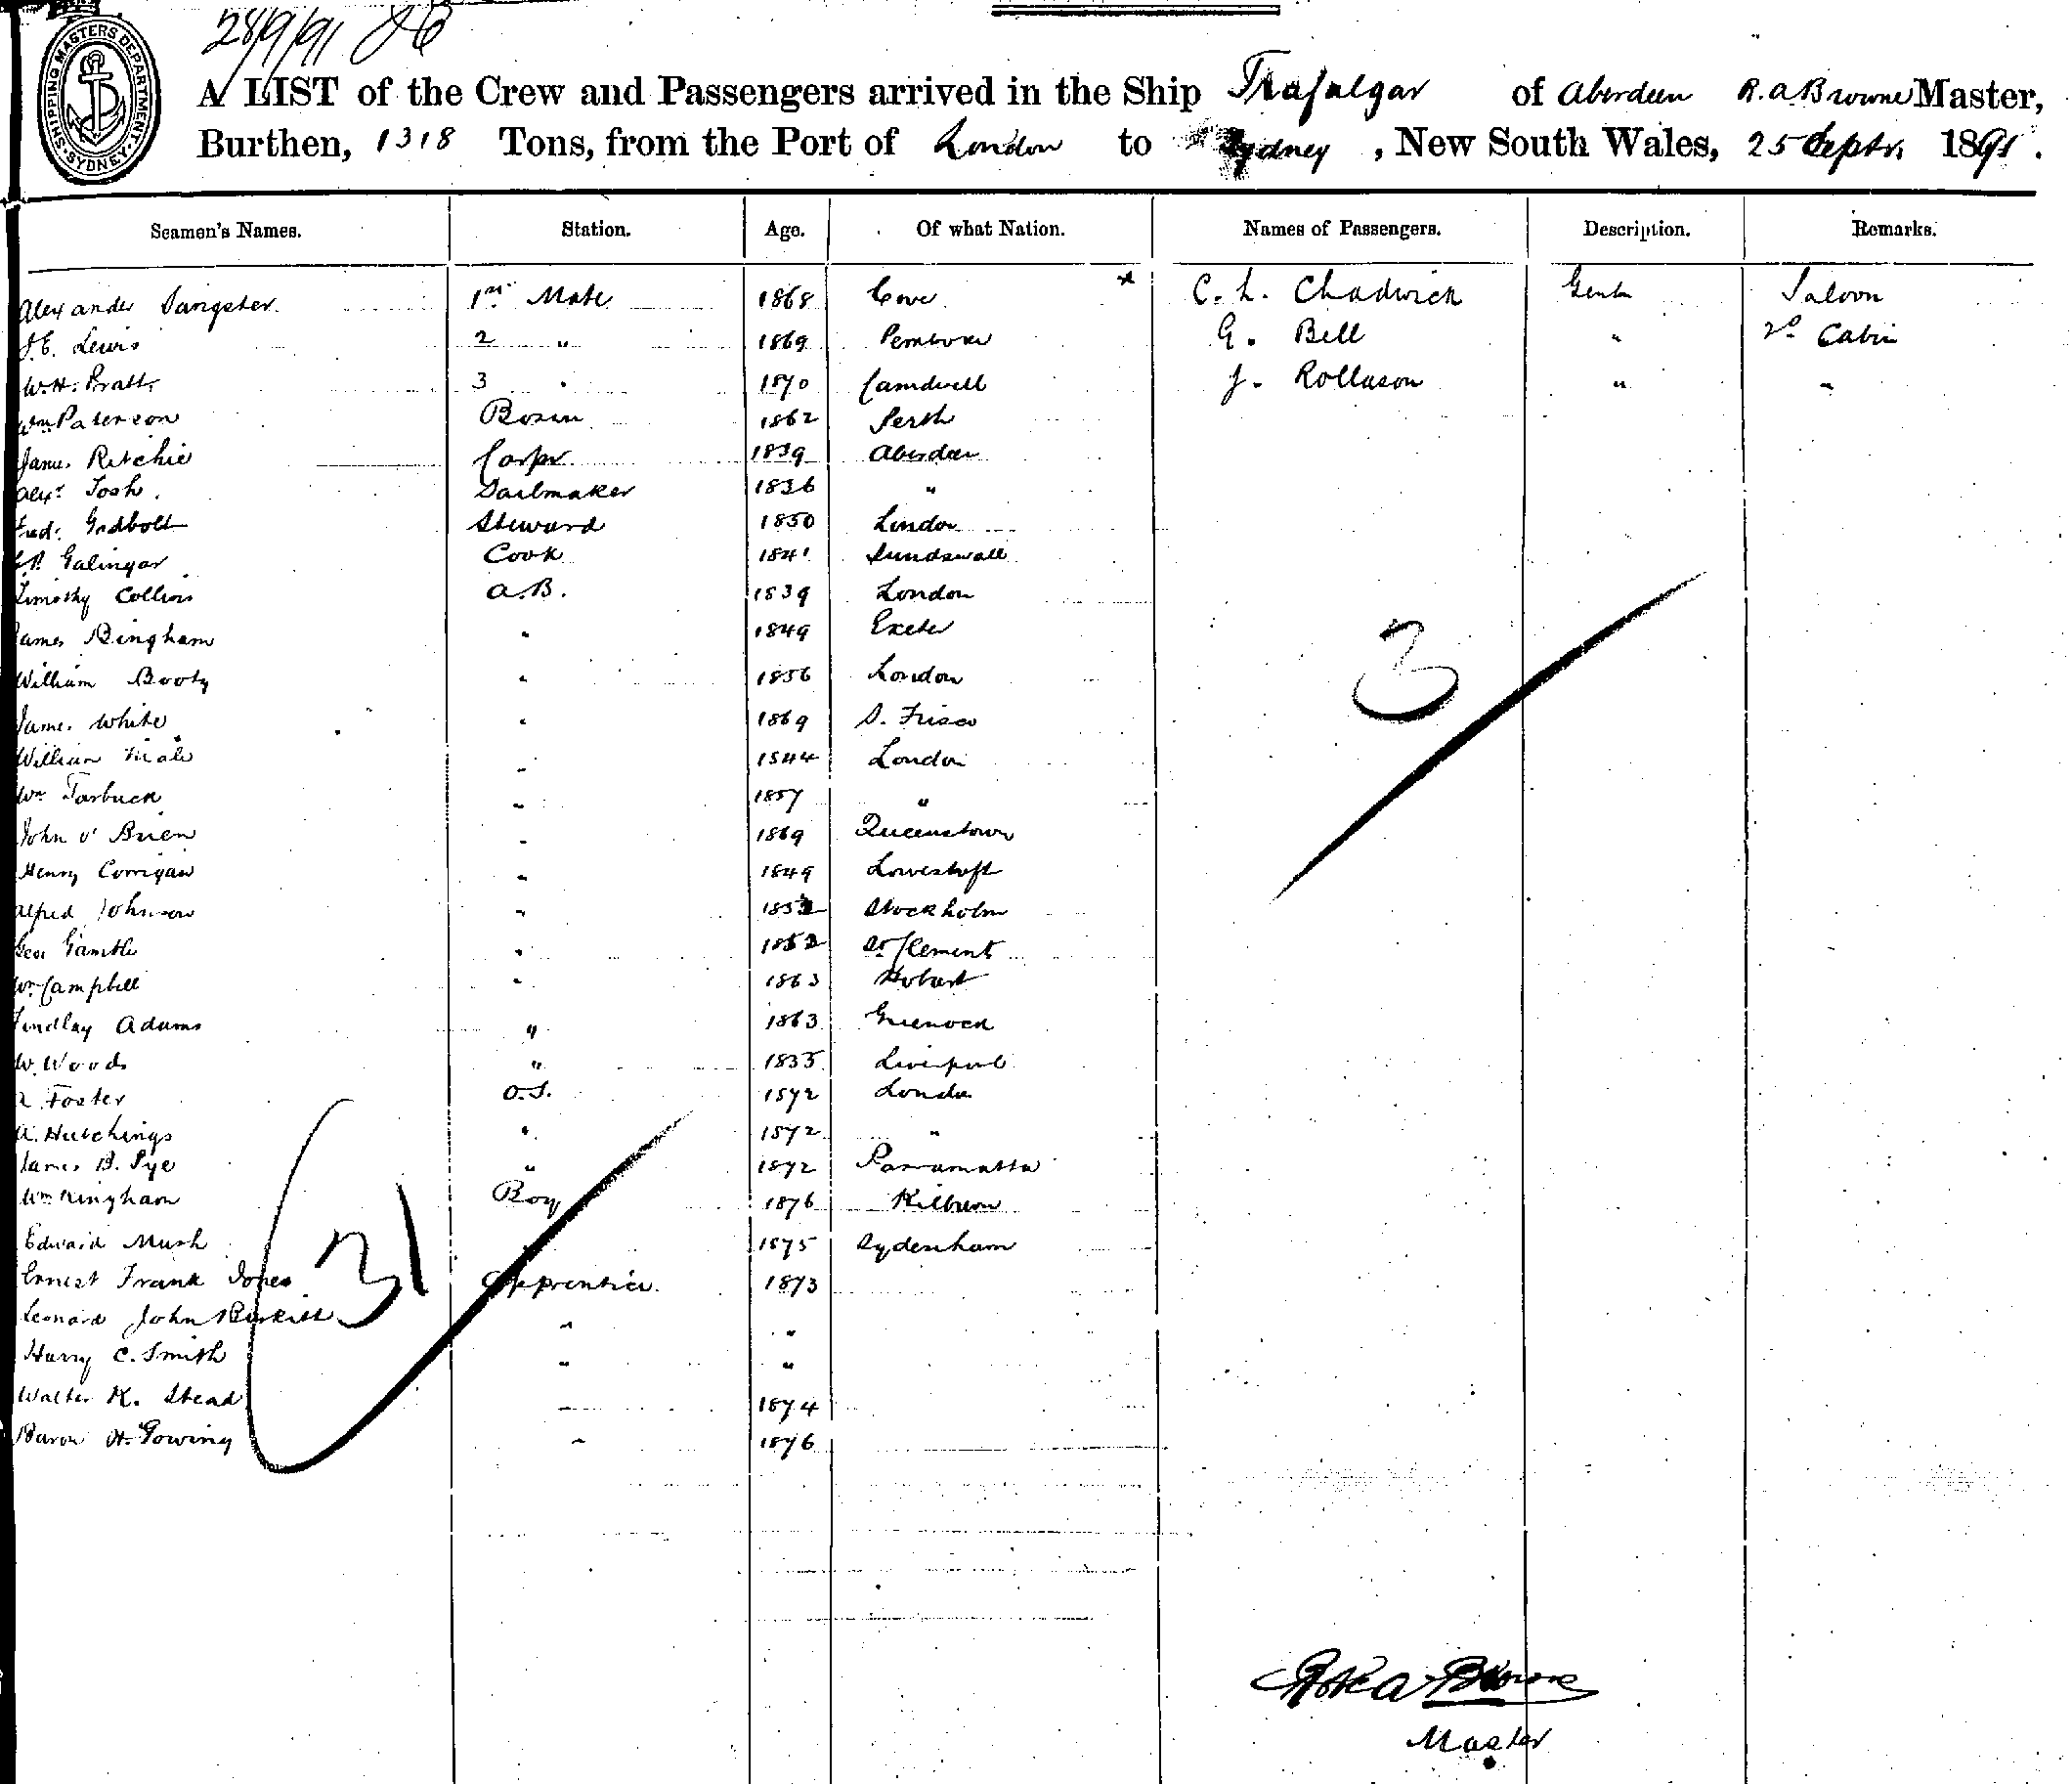 28/9/91
SHIPPING MASTERS DEPARTMENT SYDNEY
A LIST of the Crew and Passengers arrived in the Ship Trafalgar of Aberdeen R. A Browne Master,
Burthen, 1318 Tons, from the Port of London to Sydney, New South Wales, 25 Septr. 1891.
Seamen's Names. Station. Age. Of what Nation. Names of Passengers. Description. Remarks.
Alexander Sangster 1st Mate 1868 Cove C. L. Chadwick Gentn Saloon
J.E. Lewis 2 " 1869 Pembroke G. Bell " 2d Cabin
W.H. Pratt 3 " 1870 Camdwell J. Rollason " "
Wm Paterson Bosun 1862 Perth
James Ritchie Carpr 1839 Aberdeen
Alexr Tosh Sailmaker 1836 "
Fred. Godbolt Steward 1850 London
Galingar Cook 1841 Sundswall
Timothy Collins A.B. 1839 London
James Bingham " 1849 Exeter
William Booty " 1856 London
James White " 1869 S. Frisco
William " 1844 London
Wm Tarbuck " 1857 "
John O'Brien " 1869 Queenstown
Henry Corrigan " 1849 Lowestoft
Alfred Johnson " 1852 Stockholm
Geo. Gamble " 1852 St Clement
Wm Campbell " 1863 Hobart
Findlay Adams " 1863 Greenock
W. Woods " 1835 Liverpool
Foster O.S. 1872 London
A. Hutchings " 1872 "
James B. Pye " 1872 Parramatta
Wm Kingham Boy 1876 Kilburn
Edward Mush 1875 Sydenham
Ernest Frank Jones Apprentice 1873
Leonard John Birkitt " "
Harry C. Smith " "
Walter K. Stead " 1874
Baron H. Gowing " 1876
3
31
Robt A Browne
Master